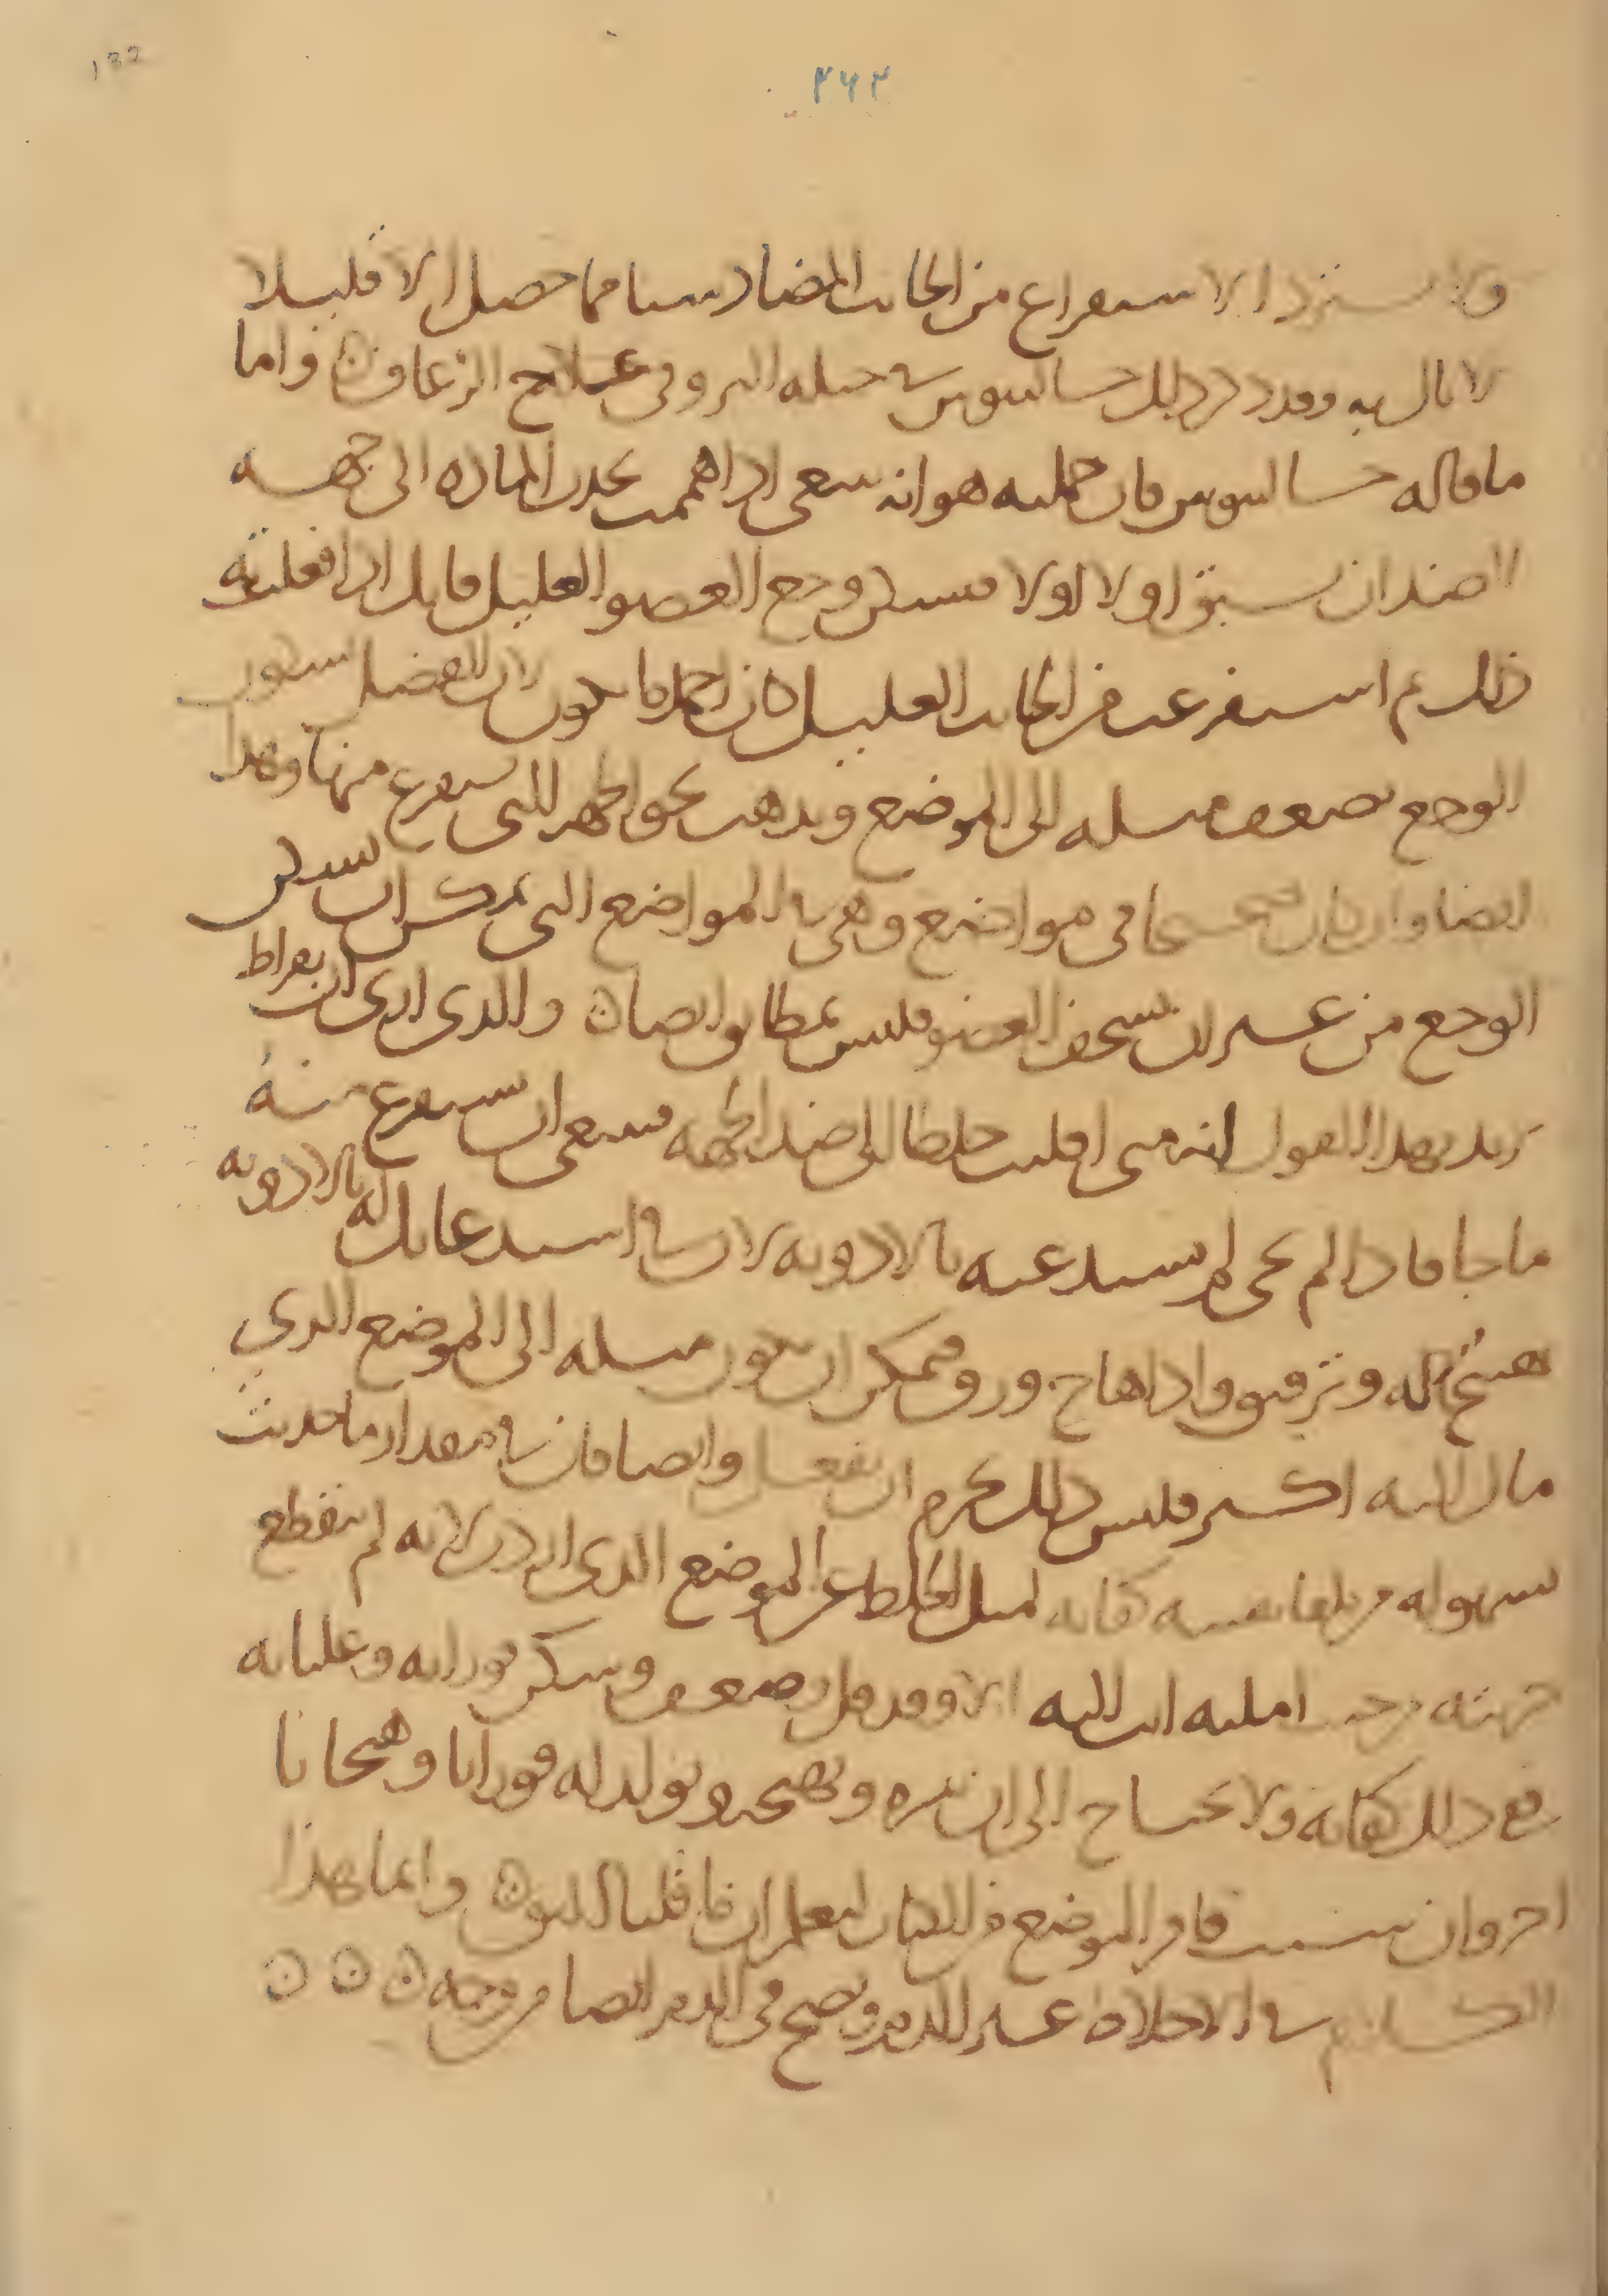 ۲۶۲
132
ولا يستزد الاستفراغ من الجانب المضاد شيئا مما حصل الا قليلا
لا بال به وقد ذكر ذلك جالينوس في حيلة البرو في علاج الرعاف واما
ما قاله جالينوس فان جملته هو انه ينبغي اذا هممت بجذب المادة الى جهة
الضد ان اولا اولا فتسكن وجع العضو العليل فانك اذا فعلت
ذلك ثم استفرغت من الجانب العليل كان احمد ما يكون لان الفضل بسكون
الوجع يضعف ميله الى الموضع ويذهب نحو الجهة التي يستفرغ منها وهذا
ايضا وان كان صحيحا في مواضع وهي المواضع التي يمكن ان يسكن
الوجع من غير ان يسخن العضو فليس بمطابق ايضا والذي ارى ان بقراط
يريد بهذا القول انه متى اقلبت خلطا الى ضد الجهة فينبغي ان يستفرغ منه
ما جا فاذا لم يجى لم يستدعيه بالادوية لان في استدعائك له بالادوية
هيج له وترقيق واذا هاج ورق فممكن ان يعود ميله الى الموضع الذي
مال اليه اكثر فليس ذلك بحرم ان يفعل وايضا فان في مقدار ما حدث
بسهولة من تلقا نفسه كفاية لميل الخلط عن الموضع الذي لانه لم ينقطع
جريته حيث املته انت اليه الا وقد قل وضعف وسكن فورانه وغليانه
فمع ذلك كفاية ولا يحتاج الى ان تثيره وتهيجه وتولد له فورانا وهيجانا
اخر وان فاقرا الموضع من الكتاب لتعلم ان ما قلنا وانما هذا
الكلام في الاخلاط عسر ويصح في الدم ايضا من وجه